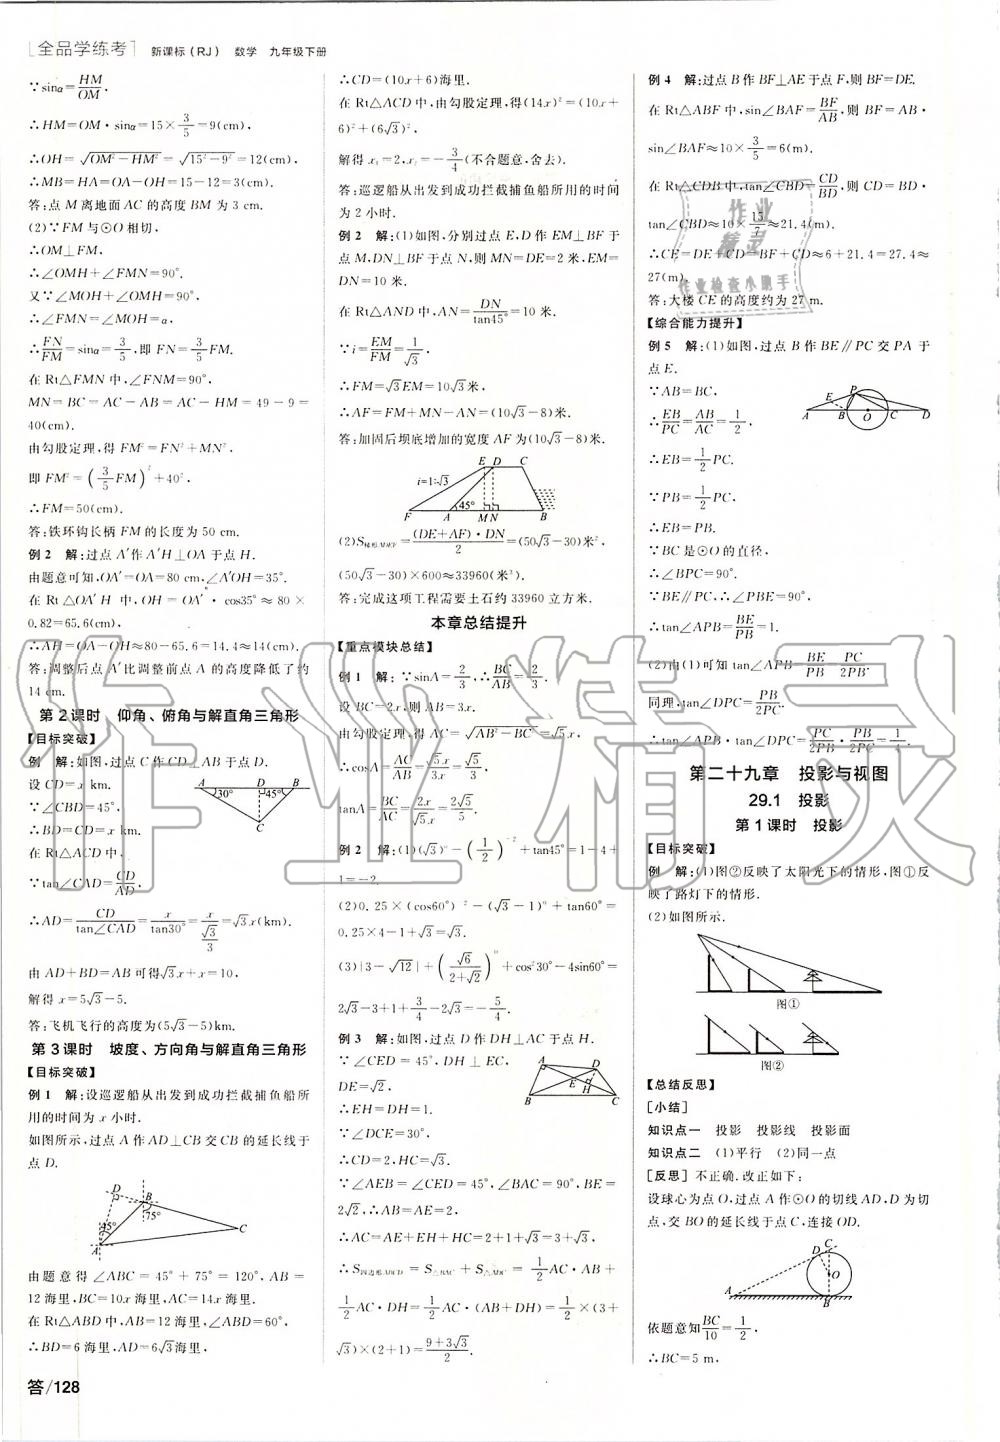 全品学练考 新课标(RJ) 数学 九年级下册
∵sinα=HM/OM,
∴HM=OM·sinα=15×3/5=9(cm),
∴OH=√(OM²-HM²)=√(15²-9²)=12(cm),
∴MB=HA=OA-OH=15-12=3(cm).
答:点 M 离地面 AC 的高度 BM 为 3 cm.
(2)∵FM 与⊙O 相切,
∴OM⊥FM,
∴∠OMH+∠FMN=90°.
又∵∠MOH+∠OMH=90°,
∴∠FMN=∠MOH=α,
∴FN/FM=sinα=3/5,即 FN=3/5FM.
在 Rt△FMN 中,∠FNM=90°,
MN=BC=AC-AB=AC-HM=49-9=
40(cm).
由勾股定理,得 FM²=FN²+MN²,
即 FM²=(3/5FM)²+40²,
∴FM=50(cm).
答:铁环钩长柄 FM 的长度为 50 cm.
例 2 解:过点 A′作 A′H⊥OA 于点 H.
由题意可知,OA′=OA=80 cm,∠A′OH=35°.
在 Rt△OA′H 中,OH=OA′·cos35°≈80×
0.82=65.6(cm),
∴AH=OA-OH≈80-65.6=14.4≈14(cm).
答:调整后点 A′比调整前点 A 的高度降低了约
14 cm.
第 2 课时 仰角、俯角与解直角三角形
【目标突破】
例 解:如图,过点 C 作 CD⊥AB 于点 D.
设 CD=x km.
∵∠CBD=45°,
∴BD=CD=x km.
在 Rt△ACD 中,
∵tan∠CAD=CD/AD,
∴AD=CD/tan∠CAD=x/tan30°=x/(√3/3)=√3x(km).
由 AD+BD=AB 可得√3x+x=10,
解得 x=5√3-5.
答:飞机飞行的高度为(5√3-5)km.
第 3 课时 坡度、方向角与解直角三角形
【目标突破】
例 1 解:设巡逻船从出发到成功拦截捕鱼船所
用的时间为 x 小时.
如图所示,过点 A 作 AD⊥CB 交 CB 的延长线于
点 D.
D B 45° 75° A C
由题意得∠ABC=45°+75°=120°,AB=
12 海里,BC=10x 海里,AC=14x 海里.
在 Rt△ABD 中,AB=12 海里,∠ABD=60°,
∴BD=6 海里,AD=6√3海里,
答/128
∴CD=(10x+6)海里.
在 Rt△ACD 中,由勾股定理,得(14x)²=(10x+
6)²+(6√3)²,
解得 x₁=2,x₂=-3/4(不合题意,舍去).
答:巡逻船从出发到成功拦截捕鱼船所用的时间
为 2 小时.
例 2 解:(1)如图,分别过点 E,D 作 EM⊥BF 于
点 M,DN⊥BF 于点 N,则 MN=DE=2 米,EM=
DN=10 米.
在 Rt△AND 中,AN=DN/tan45°=10 米.
∵i=EM/FM=1/√3,
∴FM=√3EM=10√3米,
∴AF=FM+MN-AN=(10√3-8)米.
答:加固后坝底增加的宽度 AF 为(10√3-8)米.
E D C i=1:√3 45° F A M N B
(2)S梯形ADEF=(DE+AF)·DN/2=(50√3-30)米²,
(50√3-30)×600≈33960(米³).
答:完成这项工程需要土石约 33960 立方米.
本章总结提升
【重点模块总结】
例 1 解:∵sinA=2/3,∴BC/AB=2/3,
设 BC=2x,则 AB=3x.
由勾股定理,得 AC=√(AB²-BC²)=√5x,
∴cosA=AC/AB=√5x/3x=√5/3,
tanA=BC/AC=2x/√5x=2√5/5.
例 2 解:(1)(√3)²-(1/2)⁻²+tan45°=1-4+
1=-2.
(2)0.25×(cos60°)⁻²-(√3-1)⁰+tan60°=
0.25×4-1+√3=√3.
(3)|3-√12|+(√6/(2+√2))⁰+cos²30°-4sin60°=
2√3-3+1+3/4-2√3=-5/4.
例 3 解:如图,过点 D 作 DH⊥AC 于点 H.
∵∠CED=45°,DH⊥EC,
DE=√2,
∴EH=DH=1.
∵∠DCE=30°,
∴CD=2,HC=√3.
∵∠AEB=∠CED=45°,∠BAC=90°,BE=
2√2,∴AB=AE=2,
∴AC=AE+EH+HC=2+1+√3=3+√3,
∴S四边形ABCD=S△BAC+S△DAC=1/2AC·AB+
1/2AC·DH=1/2AC·(AB+DH)=1/2×(3+
√3)×(2+1)=(9+3√3)/2.
例 4 解:过点 B 作 BF⊥AE 于点 F,则 BF=DE.
在 Rt△ABF 中,sin∠BAF=BF/AB,则 BF=AB·
sin∠BAF≈10×3/5=6(m).
在 Rt△CDB 中,tan∠CBD=CD/BD,则 CD=BD·
tan∠CBD≈10×15/7≈21.4(m).
∴CE=DE+CD=BF+CD≈6+21.4=27.4≈
27(m).
答:大楼 CE 的高度约为 27 m.
【综合能力提升】
例 5 解:(1)如图,过点 B 作 BE∥PC 交 PA 于
点 E.
∵AB=BC,
∴EB/PC=AB/AC=1/2,
∴EB=1/2PC.
∵PB=1/2PC,
∴EB=PB.
∵BC 是⊙O 的直径,
∴∠BPC=90°.
∵BE∥PC,∴∠PBE=90°,
∴tan∠APB=BE/PB=1.
(2)由(1)可知 tan∠APB=BE/PB=PC/2PB.
同理,tan∠DPC=PB/2PC,
∴tan∠APB·tan∠DPC=PC/2PB·PB/2PC=1/4.
第二十九章 投影与视图
29.1 投影
第 1 课时 投影
【目标突破】
例 解:(1)图②反映了太阳光下的情形,图①反
映了路灯下的情形.
(2)如图所示.
图①
图②
【总结反思】
[小结]
知识点一 投影 投影线 投影面
知识点二 (1)平行 (2)同一点
[反思] 不正确.改正如下:
设球心为点 O,过点 A 作⊙O 的切线 AD,D 为切
点,交 BO 的延长线于点 C,连接 OD.
C D O A B
依题意知BC/10=1/2,
∴BC=5 m,
作业精灵
作业检查小助手